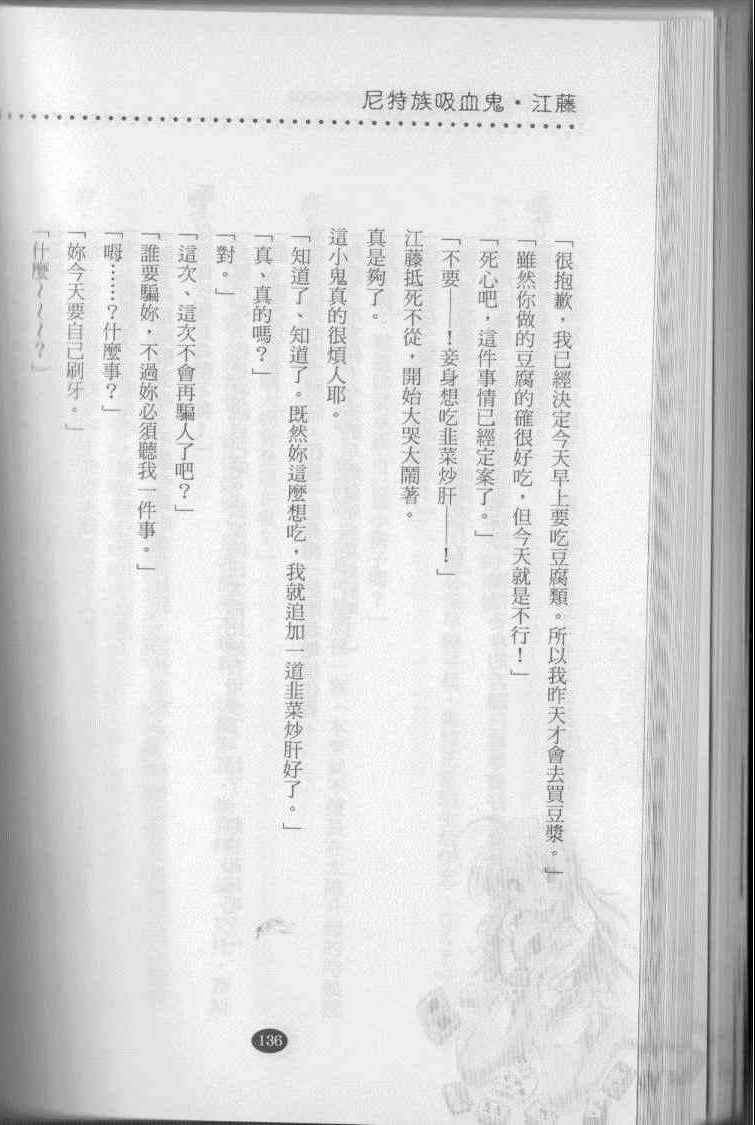 尼特族吸血鬼・江藤
「很抱歉，我已經決定今天早上要吃豆腐類。所以我昨天才會去買豆漿。」
「雖然你做的豆腐的確很好吃，但今天就是不行！」
「死心吧，這件事情已經定案了。」
「不要——！妾身想吃韭菜炒肝——！」
江藤抵死不從，開始大哭大鬧著。
真是夠了。
這小鬼真的很煩人耶。
「知道了、知道了。既然妳這麼想吃，我就追加一道韭菜炒肝好了。」
「真、真的嗎？」
「對。」
「這次、這次不會再騙人了吧？」
「誰要騙妳，不過妳必須聽我一件事。」
「嗯……？什麼事？」
「妳今天要自己刷牙。」
「什麼～～～？」
136